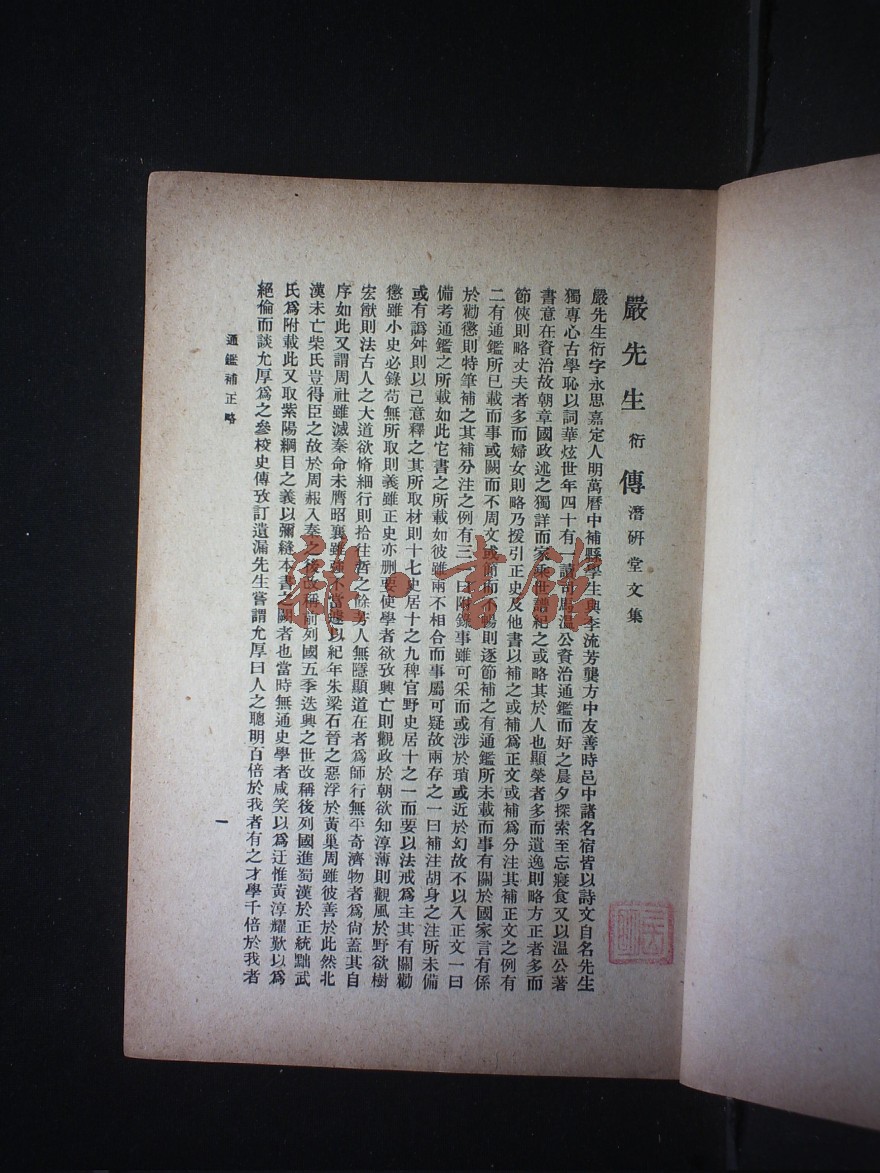 嚴先生衍傳潛硏堂文集
嚴先生衍字永思嘉定人明萬曆中補縣學生與李流芳龔方中友善時邑中諸名宿皆以詩文自名先生
獨專心古學恥以詞華炫世年四十有一讀司馬温公資治通鑑而好之晨夕探索至忘寢食又以温公著
書意在資治故朝章國政述之獨詳而家乘世譜紀之或略其於人也顯榮者多而遺逸則略方正者多而
節俠則略丈夫者多而婦女則略乃援引正史及他書以補之或補爲正文或補爲分注其補正文之例有
二有通鑑所已載而事或闕而不周文或節而不暢則逐節補之有通鑑所未載而事有關於國家言有係
於勸懲則特筆補之其補分注之例有三一曰附錄事雖可采而或涉於瑣或近於幻故不以入正文一曰
備考通鑑之所載如此它書之所載如彼雖兩不相合而事屬可疑故兩存之一曰補注胡身之注所未備
或有譌舛則以己意釋之其所取材則十七史居十之九稗官野史居十之一而要以法戒爲主其有關勸
懲雖小史必錄苟無所取則義雖正史亦删要使學者欲攷興亡則觀政於朝欲知淳薄則觀風於野欲樹
宏猷則法古人之大道欲脩細行則拾往哲之餘芳人無隱顯道在者爲師行無平奇濟物者爲尙蓋其自
序如此又謂周社雖滅秦命未膺昭襄雖强不當遽以紀年朱梁石晉之惡浮於黃巢周雖彼善於此然北
漢未亡柴氏豈得臣之故於周赧入秦之後改稱前列國五季迭興之世改稱後列國進蜀漢於正統黜武
氏爲附載此又取紫陽綱目之義以彌縫本書之闕者也當時無通史學者咸笑以爲迂惟黃淳耀歎以爲
絕倫而談允厚爲之參校史傳攷訂遺漏先生嘗謂允厚曰人之聰明百倍於我者有之才學千倍於我者
通鑑補正略
一
雜·書館